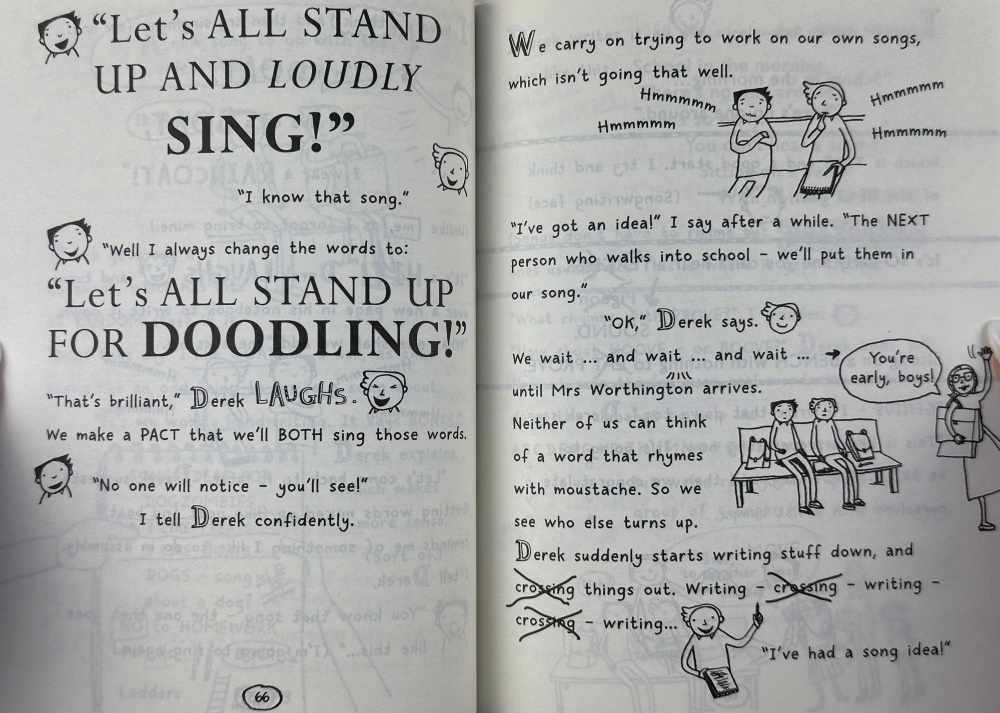 “Let’s ALL STAND
UP AND LOUDLY
SING!”
“I know that song.”
“Well I always change the words to:
“Let’s ALL STAND UP
FOR DOODLING!”
“That’s brilliant,” Derek LAUGHS.
We make a PACT that we’ll BOTH sing those words.
“No one will notice – you’ll see!”
I tell Derek confidently.
66
We carry on trying to work on our own songs,
which isn’t going that well.
Hmmmmm
Hmmmmm
Hmmmmm
Hmmmmm
“I’ve got an idea!” I say after a while. “The NEXT
person who walks into school – we’ll put them in
our song.”
“OK,” Derek says.
We wait ... and wait ... and wait ...
You’re
early, boys!
until Mrs Worthington arrives.
Neither of us can think
of a word that rhymes
with moustache. So we
see who else turns up.
Derek suddenly starts writing stuff down, and
crossing things out. Writing – crossing – writing –
crossing – writing...
“I’ve had a song idea!”